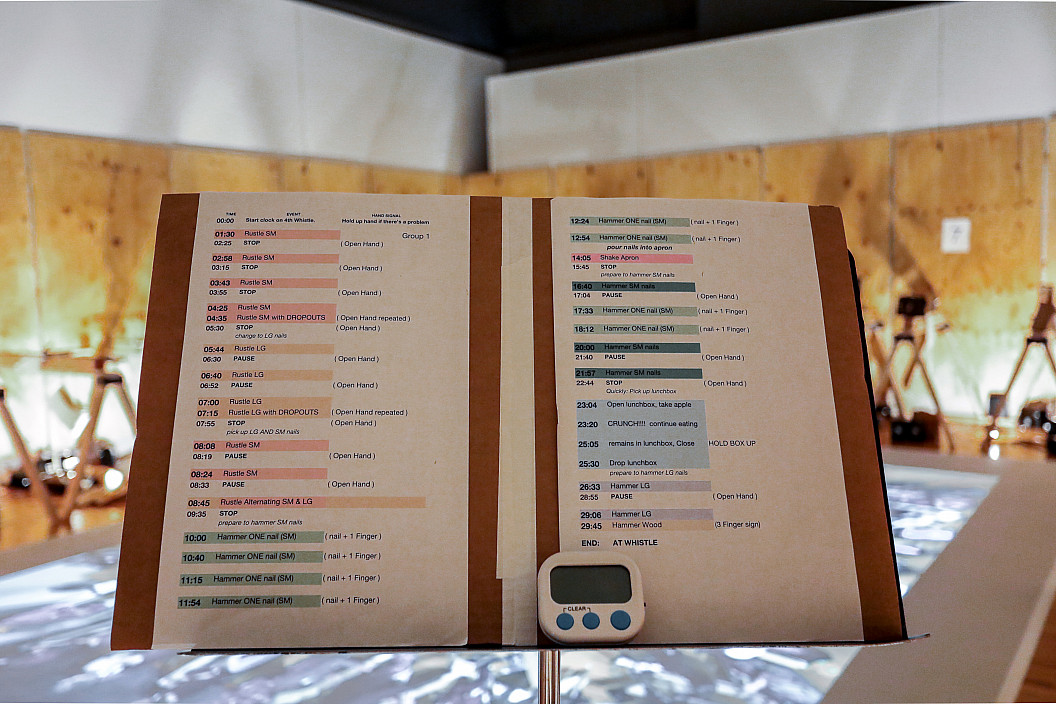 TIME EVENT HAND SIGNAL
00:00 Start clock on 4th Whistle. Hold up hand if there's a problem
Group 1
01:30 Rustle SM
02:25 STOP ( Open Hand )
02:58 Rustle SM
03:15 STOP ( Open Hand )
03:43 Rustle SM
03:55 STOP ( Open Hand )
04:25 Rustle SM
04:35 Rustle SM with DROPOUTS ( Open Hand repeated )
05:30 STOP ( Open Hand )
change to LG nails
05:44 Rustle LG
06:30 PAUSE ( Open Hand )
06:40 Rustle LG
06:52 PAUSE ( Open Hand )
07:00 Rustle LG
07:15 Rustle LG with DROPOUTS ( Open Hand repeated )
07:55 STOP ( Open Hand )
pick up LG AND SM nails
08:08 Rustle SM
08:19 PAUSE ( Open Hand )
08:24 Rustle SM
08:33 PAUSE ( Open Hand )
08:45 Rustle Alternating SM & LG
09:35 STOP
prepare to hammer SM nails
10:00 Hammer ONE nail (SM) ( nail + 1 Finger )
10:40 Hammer ONE nail (SM) ( nail + 1 Finger )
11:15 Hammer ONE nail (SM) ( nail + 1 Finger )
11:54 Hammer ONE nail (SM) ( nail + 1 Finger )
12:24 Hammer ONE nail (SM) ( nail + 1 Finger )
12:54 Hammer ONE nail (SM) ( nail + 1 Finger )
pour nails into apron
14:05 Shake Apron
15:45 STOP
prepare to hammer SM nails
16:40 Hammer SM nails
17:04 PAUSE ( Open Hand )
17:33 Hammer ONE nail (SM) ( nail + 1 Finger )
18:12 Hammer ONE nail (SM) ( nail + 1 Finger )
20:00 Hammer SM nails
21:40 PAUSE ( Open Hand )
21:57 Hammer SM nails
22:44 STOP ( Open Hand )
Quickly: Pick up lunchbox
23:04 Open lunchbox, take apple
23:20 CRUNCH!!!! continue eating
25:05 remains in lunchbox, Close HOLD BOX UP
25:30 Drop lunchbox
prepare to hammer LG nails
26:33 Hammer LG
28:55 PAUSE ( Open Hand )
29:06 Hammer LG
29:45 Hammer Wood (3 Finger sign)
END: AT WHISTLE
CLEAR